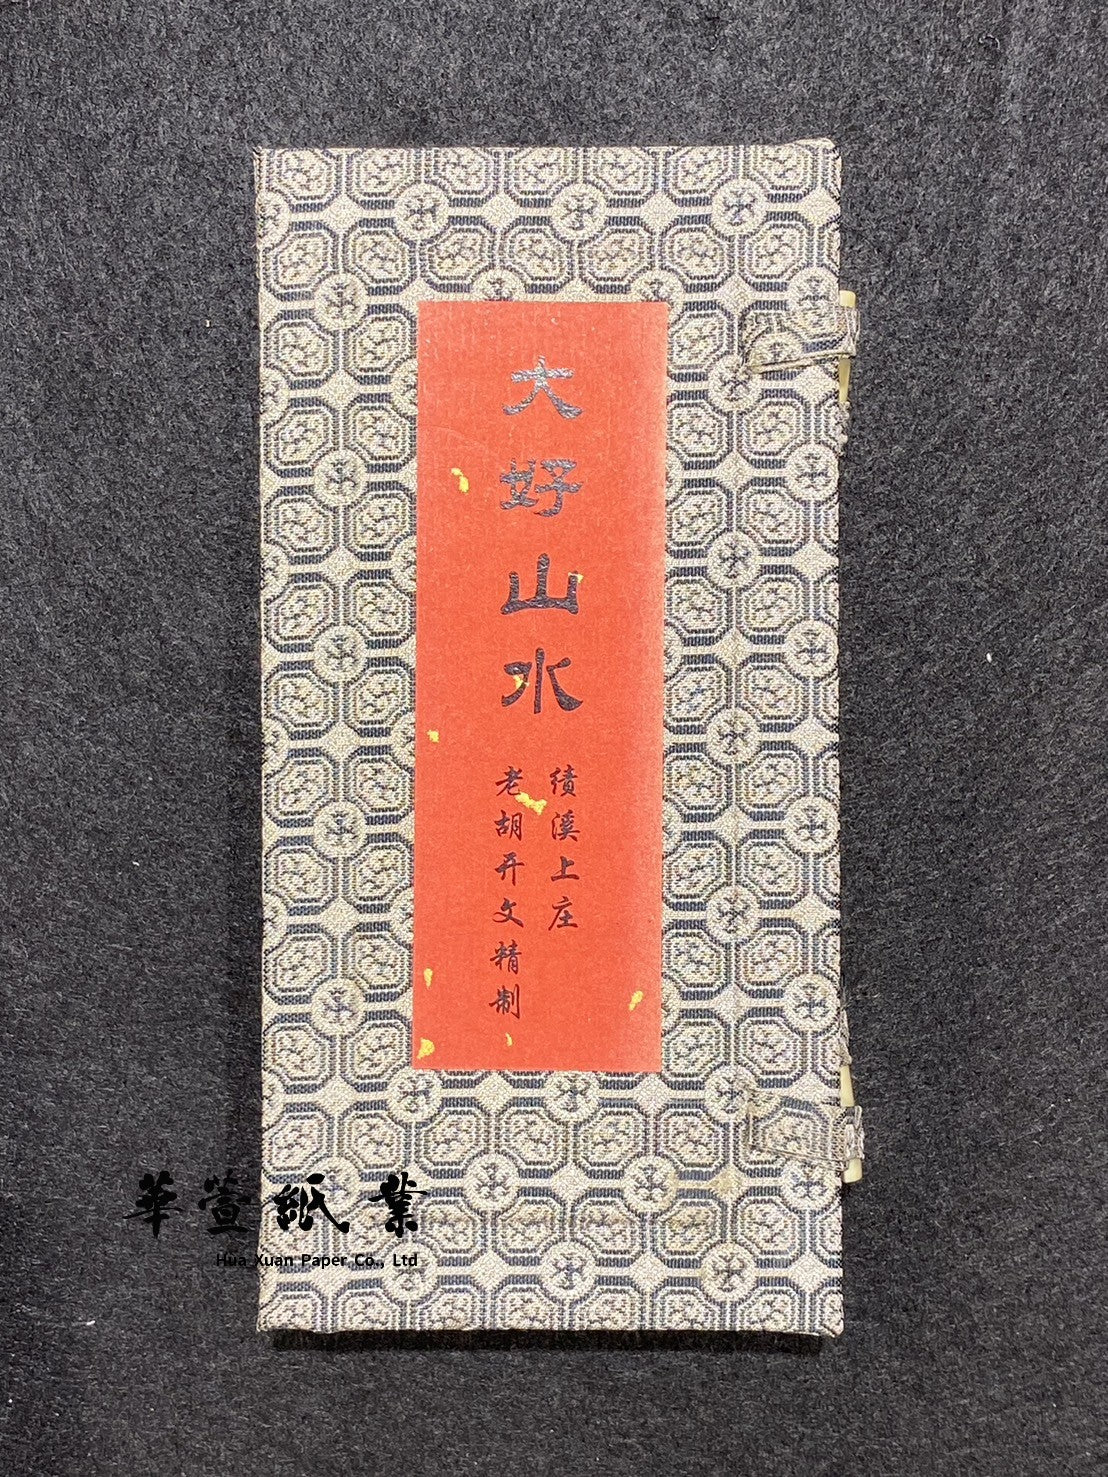 大好山水
绩溪上庄
老胡开文精制
華萱紙業
Hua Xuan Paper Co., Ltd